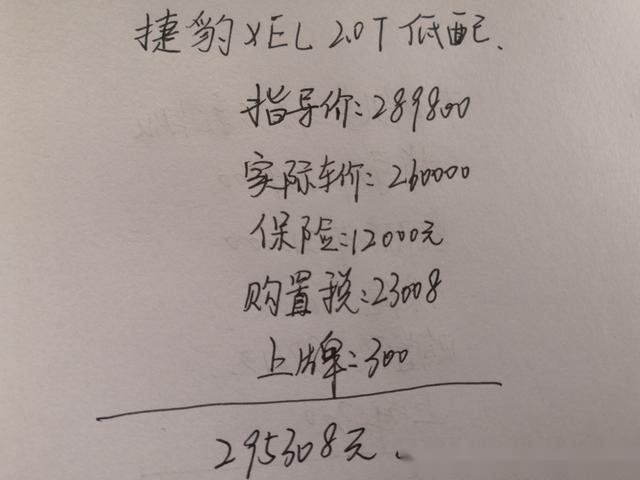 捷豹XEL 2.0T 低配.
指导价:289800
实际车价:260000
保险:12000元
购置税:23008
上牌:300
295308元.